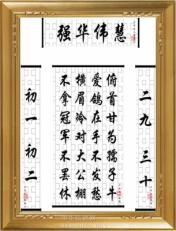 慧伟华强
二九三十
俯首甘为孺子牛
爱鸽在手不发愁
横眉冷对大公棚
不拿冠军不罢休
初一初二